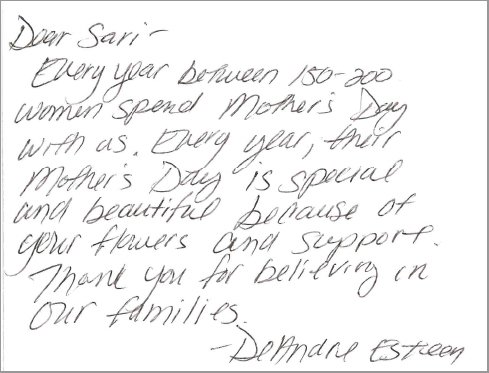 Dear Sari-
Every year between 150-200
women spend Mother's Day
with us. Every year, their
Mother's Day is special
and beautiful because of
your flowers and support.
Thank you for believing in
our families.
- DeAndre Esteen